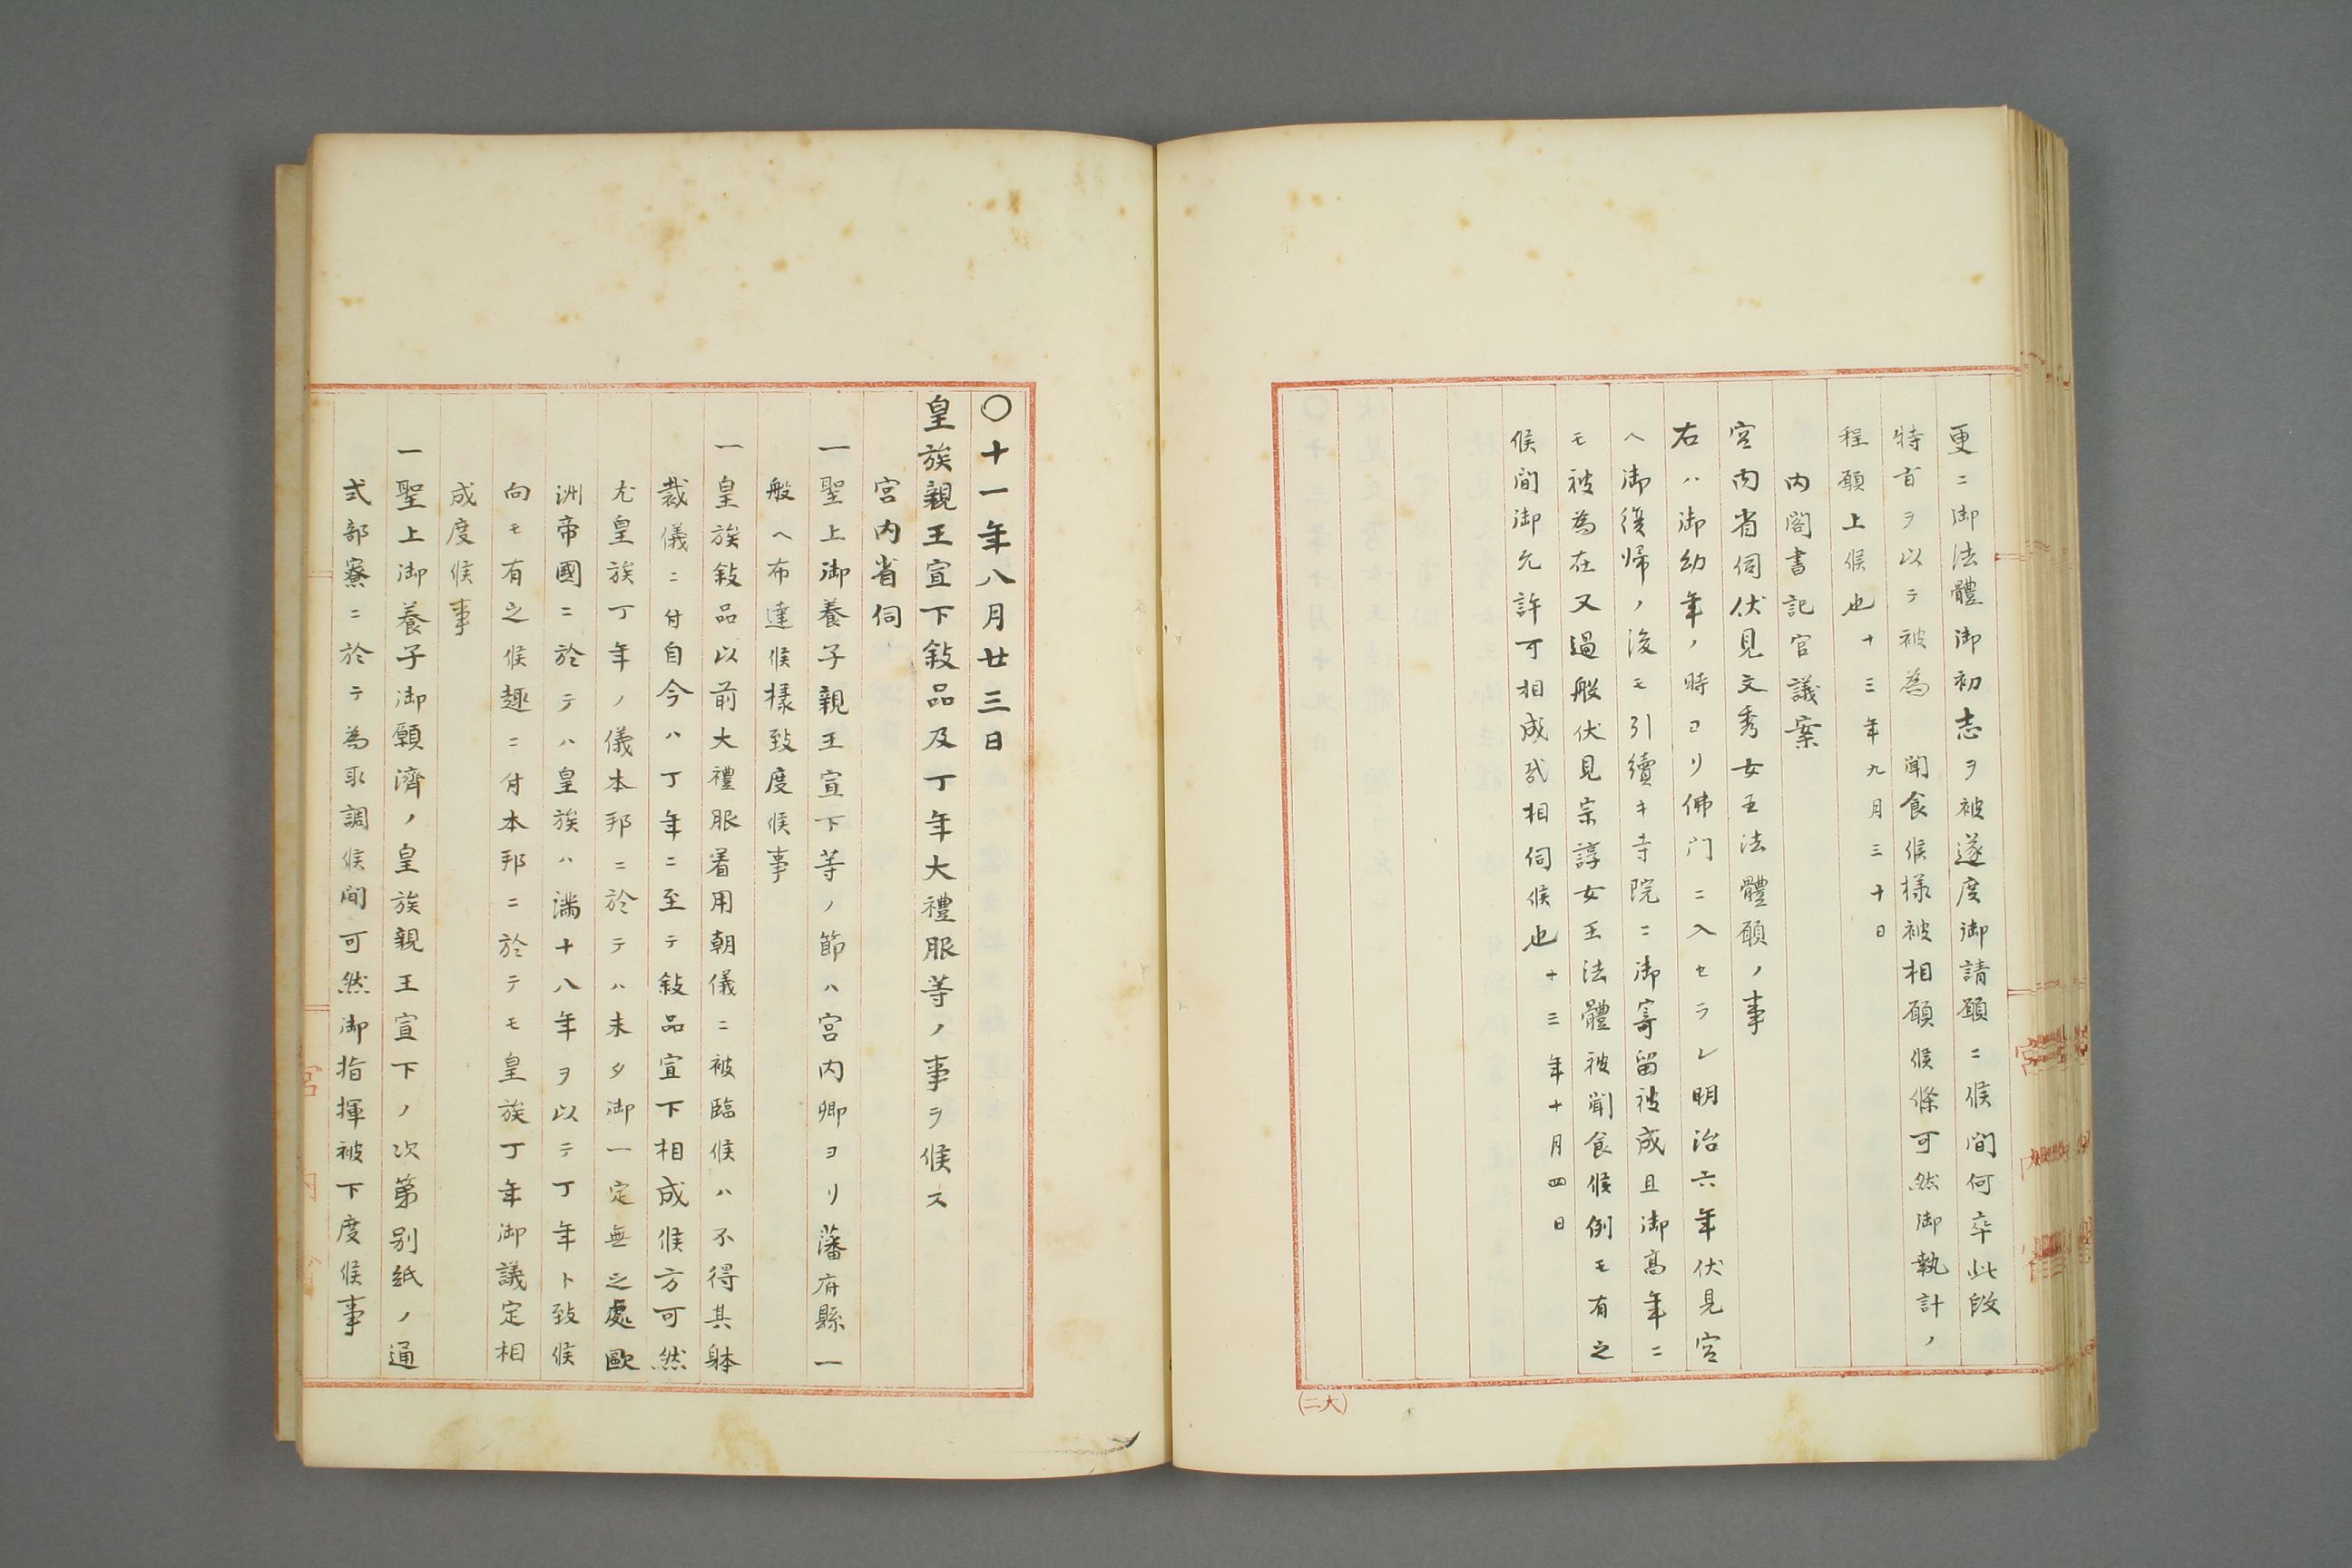 更ニ御法體御初志ヲ被遂度御請願ニ候間何卒此段
特旨ヲ以テ被為　聞食候様被相願候條可然御執計ノ
程願上候也十三年九月三十日
内閣書記官議案
宮内省伺伏見文秀女王法體願ノ事
右ハ御幼年ノ時ヨリ佛門ニ入セラレ明治六年伏見宮
ヘ御復帰ノ後モ引續キ寺院ニ御寄留被成且御高年ニ
モ被為在又過般伏見宗諄女王法體被聞食候例モ有之
候間御允許可相成哉相伺候也十三年十月四日
(二大)
〇十一年八月廿三日
皇族親王宣下敍品及丁年大禮服等ノ事ヲ候ス
宮内省伺
一聖上御養子親王宣下等ノ節ハ宮内卿ヨリ藩府縣一
般ヘ布達候様致度候事
一皇族敍品以前大禮服着用朝儀ニ被臨候ハ不得其躰
裁儀ニ付自今ハ丁年ニ至テ敍品宣下相成候方可然
尤皇族丁年ノ儀本邦ニ於テハ未タ御一定無之處歐
洲帝國ニ於テハ皇族ハ満十八年ヲ以テ丁年ト致候
向モ有之候趣ニ付本邦ニ於テモ皇族丁年御議定相
成度候事
一聖上御養子御願濟ノ皇族親王宣下ノ次第別紙ノ通
式部寮ニ於テ為取調候間可然御指揮被下度候事
宮
内